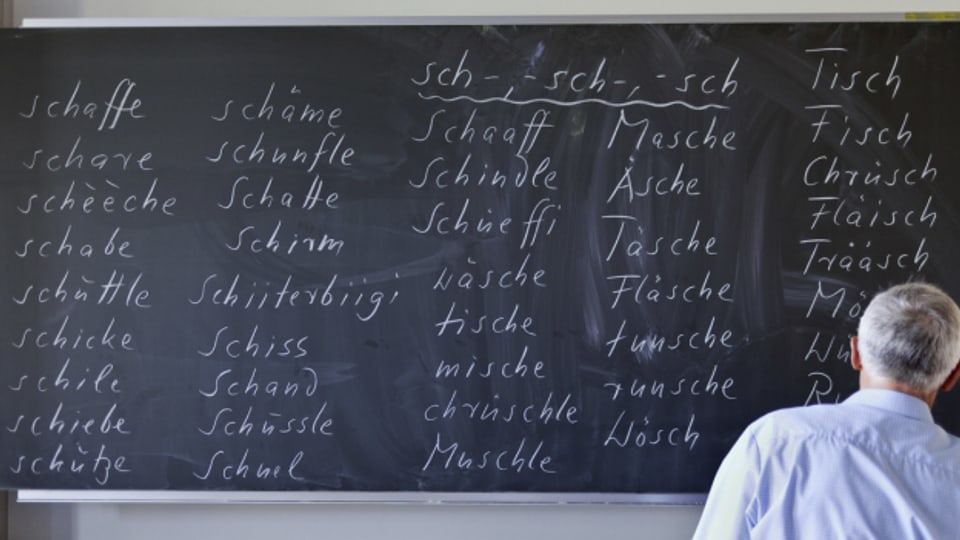 sch-, -sch-, -sch
schaffe
schare
schèèche
schabe
schüttle
schicke
schile
schiebe
schütze
schäme
schunfle
Schatte
Schirm
Schiiterbiigi
Schiss
Schand
Schüssle
Schuel
Schaaff
Schindle
Schueffi
wäsche
tische
mische
chrüschle
Muschle
Masche
Äsche
Täsche
Fläsche
tunsche
runsche
Wösch
Tisch
Fisch
Chrüsch
Fläisch
Trääsch